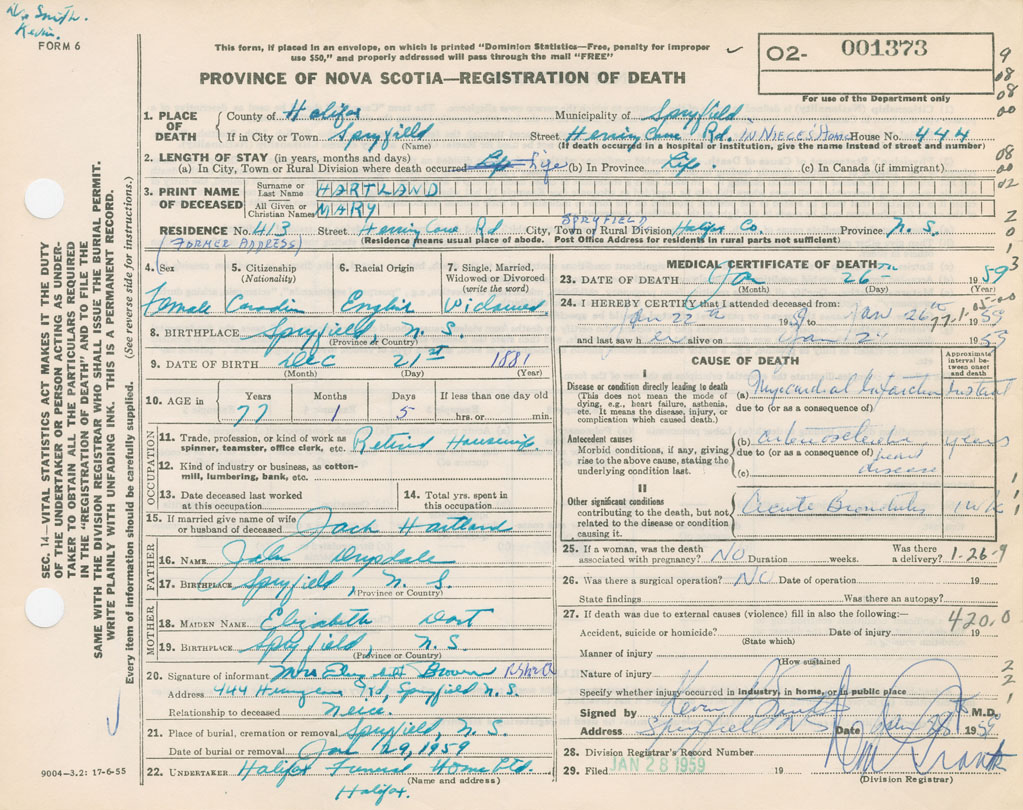 Dr. Smith.
Kevin.
FORM 6
This form, if placed in an envelope, on which is printed "Dominion Statistics—Free, penalty for improper
use $50," and properly addressed will pass through the mail "FREE"
02- 001373
For use of the Department only
PROVINCE OF NOVA SCOTIA—REGISTRATION OF DEATH
9
08
08
00
08
00
02
2
0
1
3
1. PLACE OF DEATH
County of Halifax Municipality of Spryfield
If in City or Town Spryfield Street Herring Cove Rd. IN NIECE'S HOME House No. 444
(Name) (If death occurred in a hospital or institution, give the name instead of street and number)
2. LENGTH OF STAY (in years, months and days)
(a) In City, Town or Rural Division where death occurred Life (b) In Province Life. (c) In Canada (if immigrant)
3. PRINT NAME OF DECEASED
Surname or Last Name HARTLAND
All Given or Christian Names MARY
RESIDENCE No. 413 Street Herring Cove Rd City, Town or Rural Division SPRYFIELD Halifax Co. Province N. S.
(FORMER ADDRESS) (Residence means usual place of abode. Post Office Address for residents in rural parts not sufficient)
4. Sex Female
5. Citizenship (Nationality) Canadin
6. Racial Origin English
7. Single, Married, Widowed or Divorced (write the word) Widowed
8. BIRTHPLACE Spryfield N. S.
(Province or Country)
9. DATE OF BIRTH Dec 21st 1881
(Month) (Day) (Year)
10. AGE in Years Months Days If less than one day old
77 1 5 hrs. or min.
OCCUPATION
11. Trade, profession, or kind of work as
spinner, teamster, office clerk, etc. Retired Housewife
12. Kind of industry or business, as cotton-
mill, lumbering, bank, etc.
13. Date deceased last worked
at this occupation
14. Total yrs. spent in
this occupation
15. If married give name of wife
or husband of deceased Jack Hartland
FATHER
16. NAME John Drysdale
17. BIRTHPLACE Spryfield, N. S.
(Province or Country)
MOTHER
18. MAIDEN NAME Elizabeth
19. BIRTHPLACE Spryfield, N.S.
(Province or Country)
20. Signature of informant Mrs Brown
Address 444 Rd, Spryfield N. S.
Relationship to deceased Neice.
21. Place of burial, cremation or removal Spryfield, N. S.
Date of burial or removal Jan 29, 1959
22. UNDERTAKER Halifax Funeral Home Ltd.
(Name and address)
Halifax.
MEDICAL CERTIFICATE OF DEATH
23. DATE OF DEATH Jan 26th 1959
(Month) (Day) (Year)
24. I HEREBY CERTIFY that I attended deceased from:
Jan 22th 1959 to Jan 26th 1959
77-1-05-00
and last saw her alive on Jan 1959
CAUSE OF DEATH
Approximate
interval be-
tween onset
and death
I
Disease or condition directly leading to death
(This does not mean the mode of
dying, e.g., heart failure, asthenia,
etc. It means the disease, injury, or
complication which caused death.)
(a) Myocardial Infarction Instant
due to (or as a consequence of)
Antecedent causes
Morbid conditions, if any, giving
rise to the above cause, stating the
underlying condition last.
(b) arteriosclerotic years
due to (or as a consequence of) heart
(c) disease
II
Other significant conditions
contributing to the death, but not
related to the disease or condition
causing it.
Acute Bronchitis 1 wk
25. If a woman, was the death
associated with pregnancy? NO Duration weeks. Was there
a delivery? 1-26-9
26. Was there a surgical operation? No Date of operation 19
State findings Was there an autopsy?
27. If death was due to external causes (violence) fill in also the following:— 420.0
Accident, suicide or homicide? Date of injury 19
(State which)
Manner of injury
(How sustained
Nature of injury
Specify whether injury occurred in industry, in home, or in public place
Signed by Kevin Smith M.D.
Address Spryfield NS Date Jan 28 1959
28. Division Registrar's Record Number
29. Filed JAN 28 1959 19
(Division Registrar)
SEC. 14—VITAL STATISTICS ACT MAKES IT THE DUTY
OF THE UNDERTAKER OR PERSON ACTING AS UNDER-
TAKER TO OBTAIN ALL THE PARTICULARS REQUIRED
IN THE "REGISTRATION OF DEATH" AND TO FILE THE
SAME WITH THE DIVISION REGISTRAR WHO SHALL ISSUE THE BURIAL PERMIT.
WRITE PLAINLY WITH UNFADING INK. THIS IS A PERMANENT RECORD.
Every item of information should be carefully supplied. (See reverse side for instructions.)
9004-3.2: 17-6-55